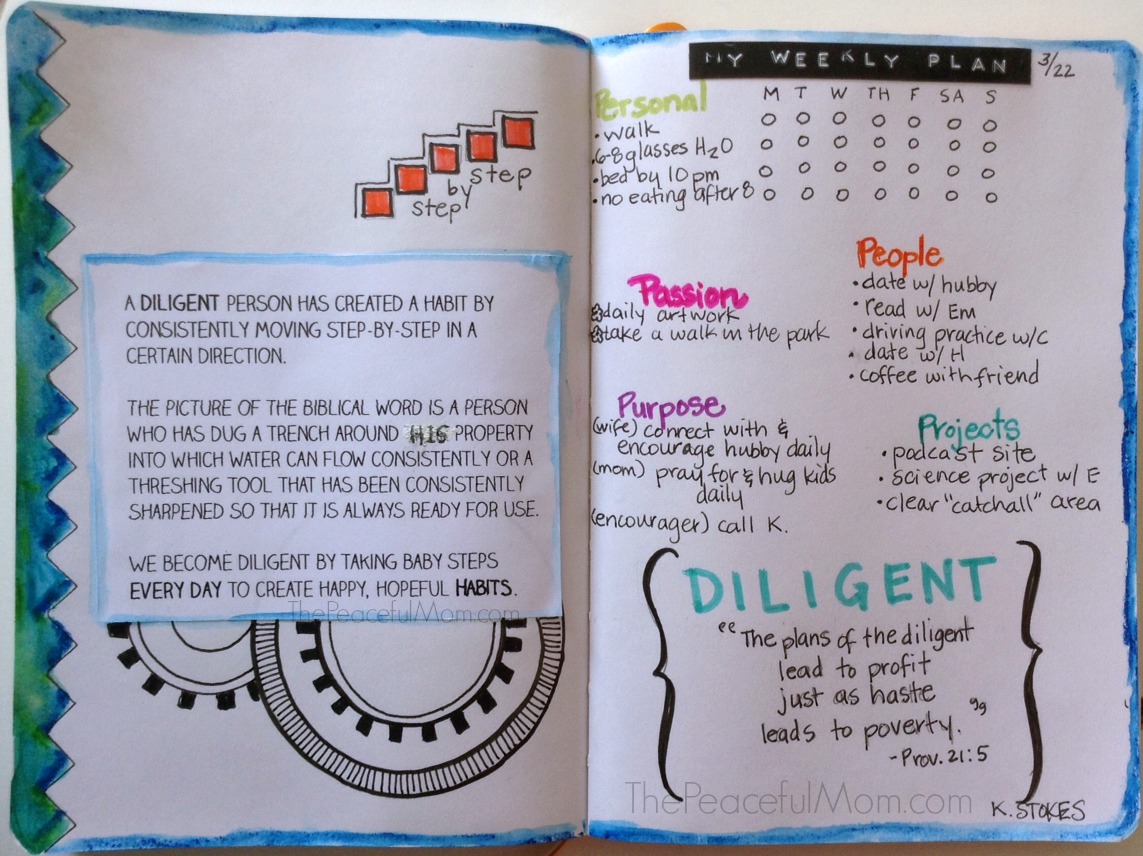 step
by
step
A DILIGENT PERSON HAS CREATED A HABIT BY
CONSISTENTLY MOVING STEP-BY-STEP IN A
CERTAIN DIRECTION.
THE PICTURE OF THE BIBLICAL WORD IS A PERSON
WHO HAS DUG A TRENCH AROUND HIS PROPERTY
INTO WHICH WATER CAN FLOW CONSISTENTLY OR A
THRESHING TOOL THAT HAS BEEN CONSISTENTLY
SHARPENED SO THAT IT IS ALWAYS READY FOR USE.
WE BECOME DILIGENT BY TAKING BABY STEPS
EVERY DAY TO CREATE HAPPY, HOPEFUL HABITS.
ThePeacefulMom.com
MY WEEKLY PLAN 3/22
Personal M T W TH F SA S
• walk
• 6-8 glasses H₂O
• bed by 10 pm
• no eating after 8
Passion
daily artwork
take a walk in the park
People
• date w/ hubby
• read w/ Em
• driving practice w/C
• date w/ H
• coffee with friend
Purpose
(wife) connect with &
encourage hubby daily
(mom) pray for & hug kids
daily
(encourager) call K.
Projects
• podcast site
• science project w/ E
• clear "catchall" area
DILIGENT
"The plans of the diligent
lead to profit
just as haste
leads to poverty."
- Prov. 21:5
ThePeacefulMom.com
K. STOKES